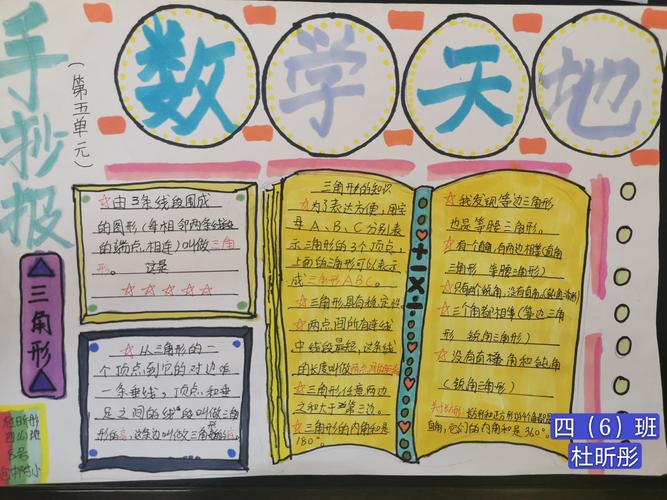 手抄报
(第五单元)
数学天地
三角形
☆由3条线段围成
的图形(每相邻两条线段
的端点相连)叫做三角
形。 这是
☆☆☆☆☆
☆从三角形的一
个顶点到它的对边作
一条垂线,顶点和垂
足之间的线段叫做三角
形的高,这条边叫做三角形的底。
三角形的知识
☆为了表达方便,用字
母A、B、C分别表
示三角形的3个顶点,
上面的三角形可以表示
成三角形ABC。
☆三角形具有稳定性
☆两点间所有连线
中线段最短,这条线
的长度叫做两点间的距离
☆三角形任意两边
之和大于第三边。
☆三角形的内角和是
180°。
+-×÷
☆我发现等边三角形
也是等腰三角形。
☆有个直角,有两边相等(直角
三角形 等腰三角形)
☆只有两个锐角,没有直角
☆三个角都相等(等边三角
形 锐角三角形)
☆没有直角和钝角
(锐角三角形)
长方形和正方形的4个角都是
直角,它们的内角和是360°。
杜昕彤
四(6)班
四(6)班
杜昕彤